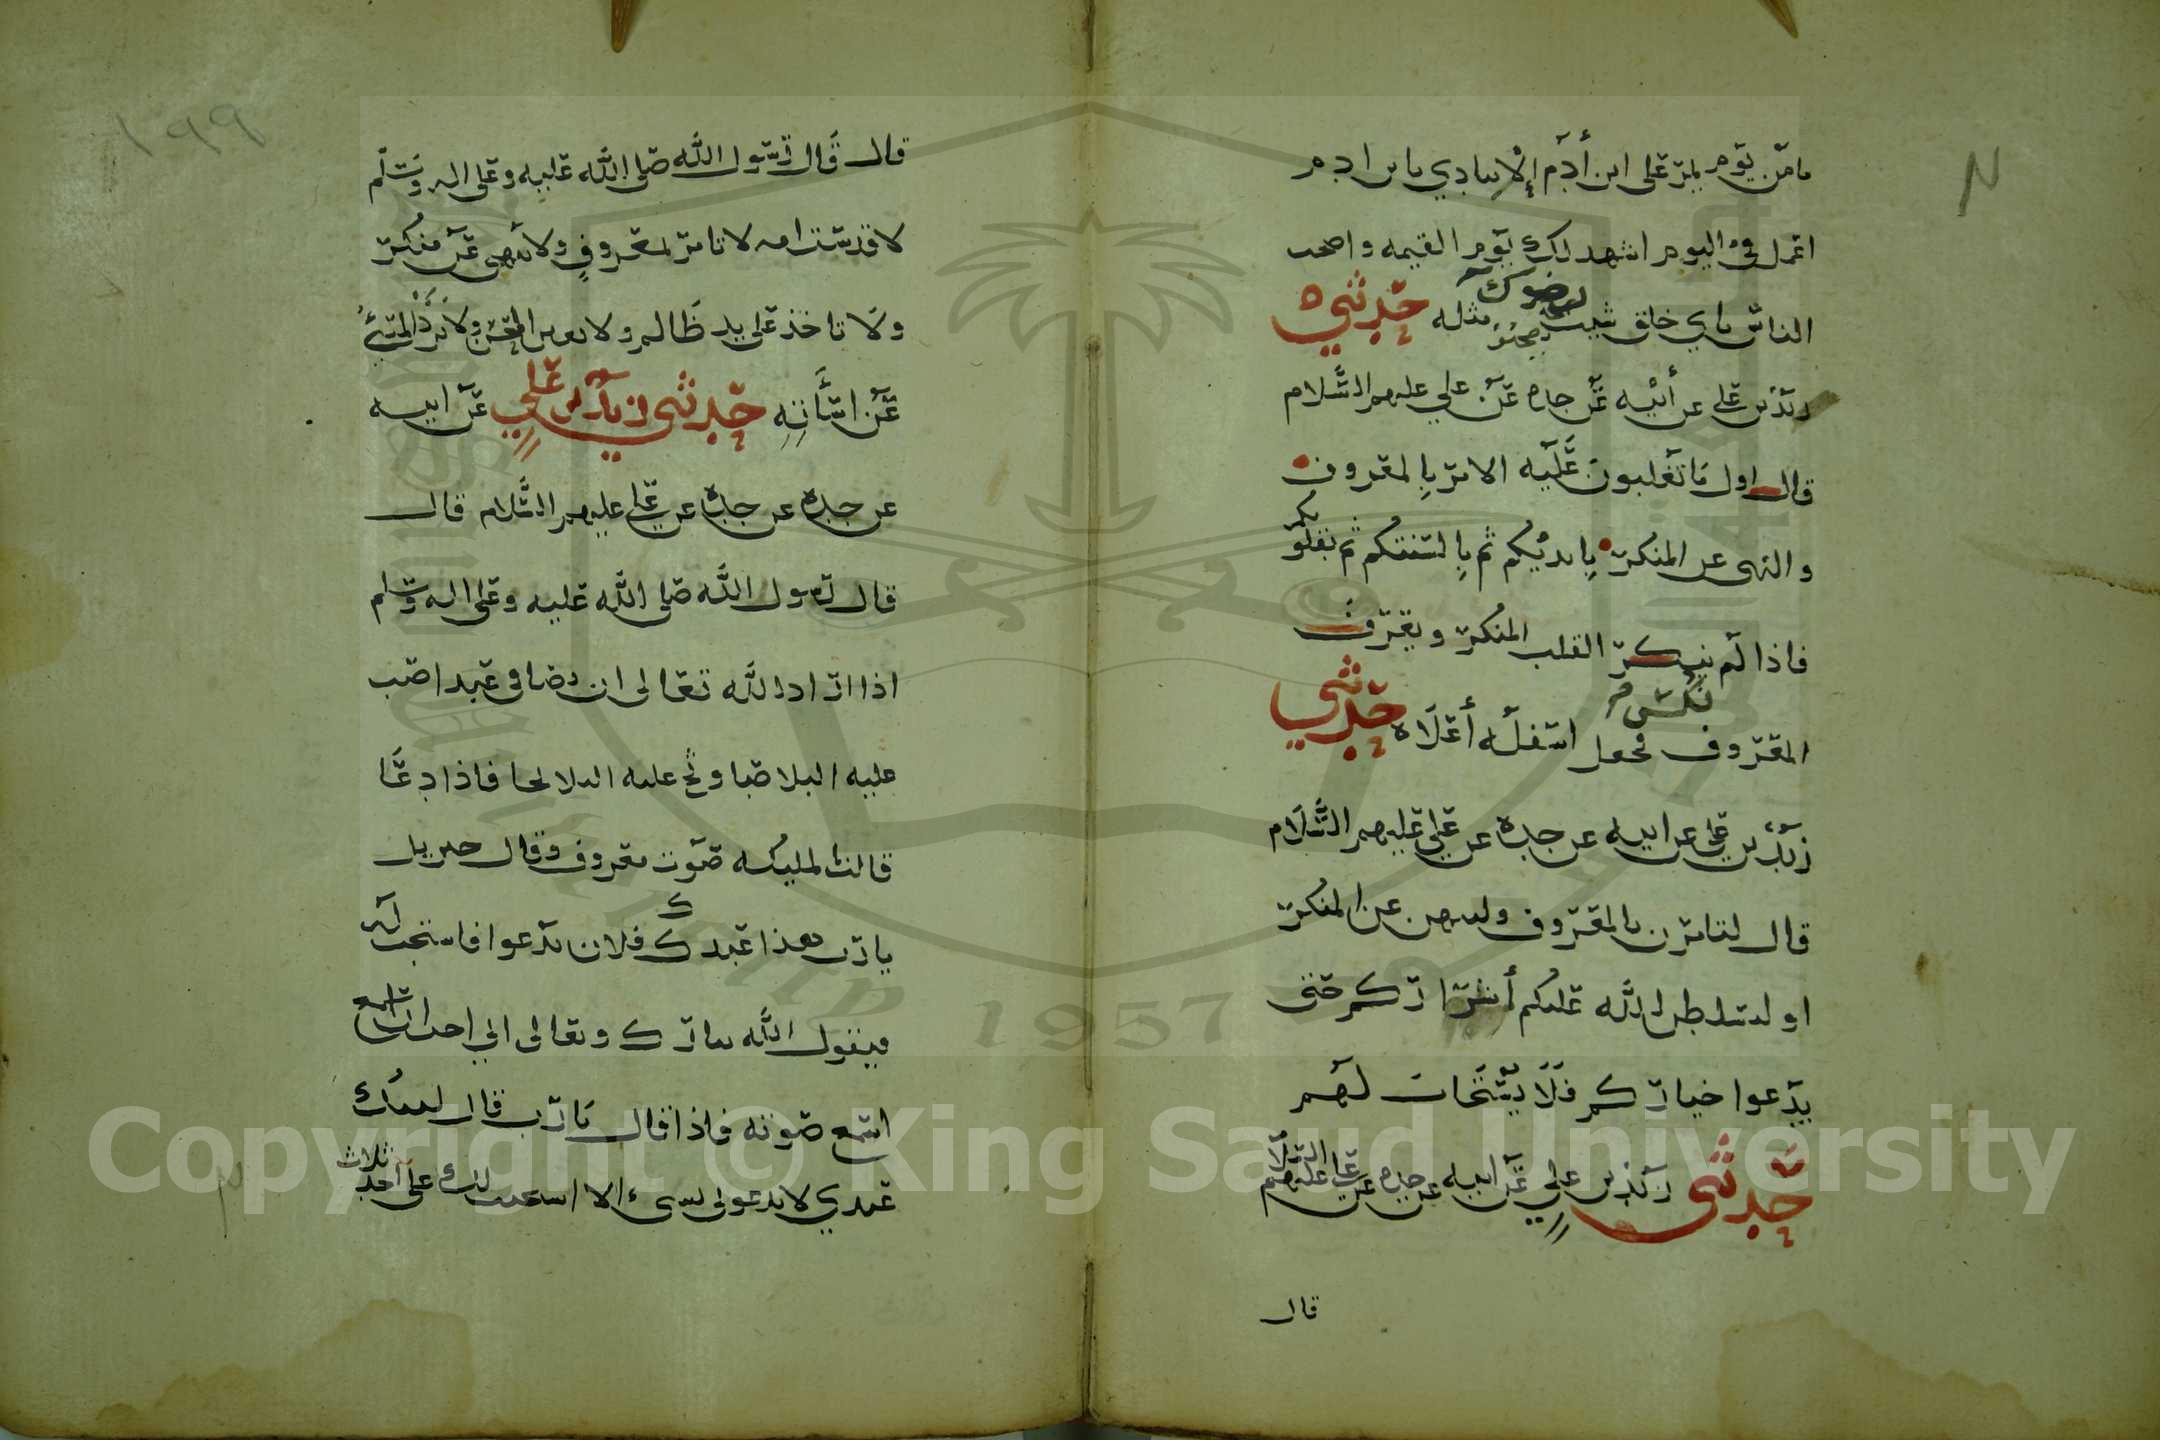 ما من يوم يمر على ابن أدم إلا ينادي يا بن ادم
اعمل في اليوم اشهد لك يوم القيمه واصحب
الناس باي خلق شيت يصحبوك مثله حدثني
زيد بن علي عن أبيه عن جده عن علي عليهم السلام
قال اول ما تغلبون عليه الامر بالمعروف
والنهى عن المنكر بايديكم ثم بالسنتكم ثم بقلوبكم
فاذا لم ينكر القلب المنكر ويعرف
المعروف نكس فجعل اسفله أعلاه حدثني
زيد بن علي عن ابيه عن جده عن علي عليهم السلام
قال لتامرن بالمعروف ولتنهن عن المنكر
او ليسلطن الله عليكم أشراركم حتى
يدعوا خياركم فلا يستجاب لهم
حدثني زيد بن علي عن ابيه عن جده عن علي عليهم السلام
قال
١٩٩
قال قال رسول الله صلى الله عليه وعلى اله وسلم
لا قدست امه لا تامر بمعروف ولا تنهى عن منكر
ولا تاخذ على يد ظالم ولا تعين المحسن ولا ترد المسئ
عن اسأته حدثني زيد بن علي عن ابيه
عن جده عن جده عن علي عليهم السلام قال
قال رسول الله صلى الله عليه وعلى اله وسلم
اذا اراد الله تعالى ان يصافي عبدا صب
عليه البلا صبا وثج عليه البلا ثجا فاذا دعا
قالت المليكه صوت معروف وقال جبريل
يا رب هذا عبدك فلان يدعوا فاستجب له
فيقول الله تبارك وتعالى اني احب ان اسمع
اسمع صوته فاذا قال يا رب قال لبيك
عبدي لا تدعوني بشىء الا استجبت لك على احدى ثلاث
1957
Copyright © King Saud University